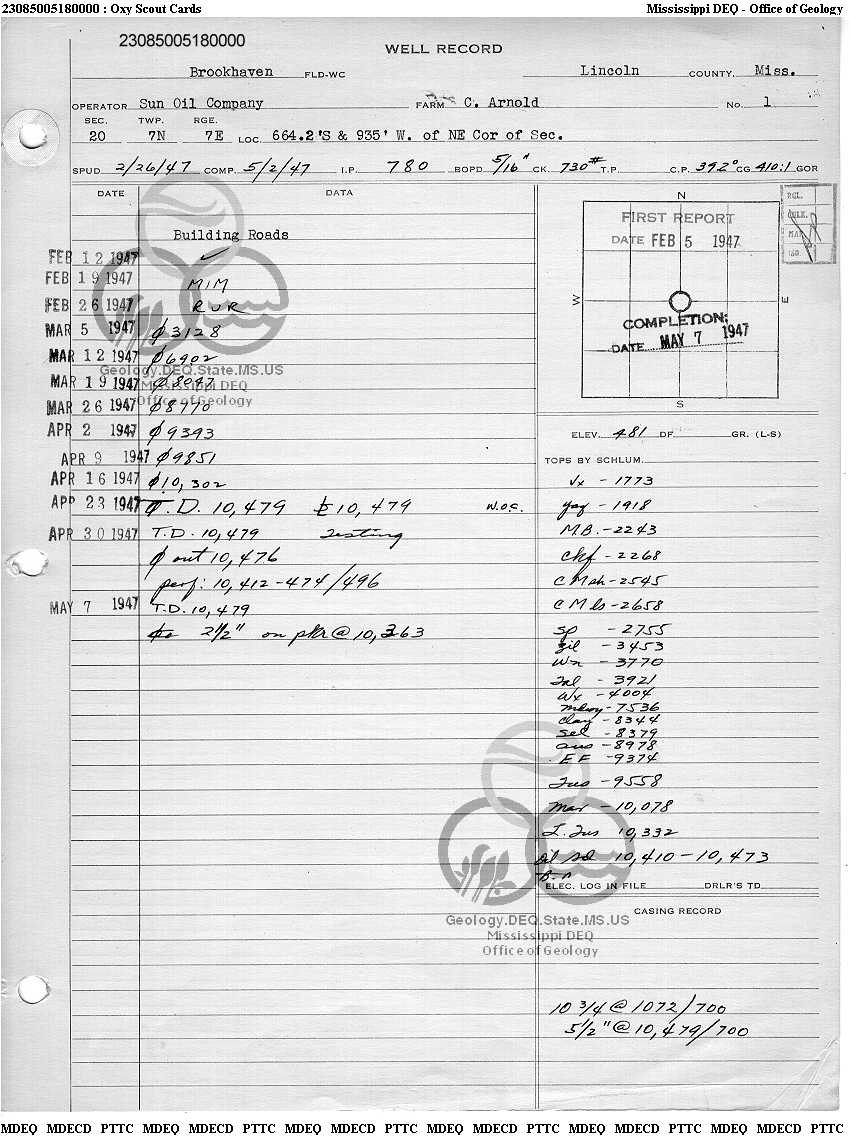 23085005180000 : Oxy Scout Cards Mississippi DEQ - Office of Geology
23085005180000
WELL RECORD
Brookhaven FLD-WC Lincoln COUNTY, Miss.
OPERATOR Sun Oil Company FARM C. Arnold No. 1
SEC. TWP. RGE.
20 7N 7E LOC. 664.2'S & 935' W. of NE Cor of Sec.
SPUD 2/26/47 COMP. 5/2/47 I.P. 780 BOPD 5/16" CK. 730# T.P. C.P. 392° CG 410:1 GOR
DATE DATA
Building Roads
FEB 12 1947 ✓
FEB 19 1947 MIM
FEB 26 1947 RUR
MAR 5 1947 ϕ3128
MAR 12 1947 ϕ6902
MAR 19 1947 ϕ8047
MAR 26 1947 ϕ8770
APR 2 1947 ϕ9393
APR 9 1947 ϕ9851
APR 16 1947 ϕ10,302
APR 23 1947 T.D. 10,479 10,479 W.O.C.
APR 30 1947 T.D. 10,479 Testing
ϕ out 10,476
perf: 10,412-474/496
MAY 7 1947 T.D. 10,479
2½" on pkr @ 10,363
Geology.DEQ.State.MS.US
Mississippi DEQ
Office of Geology
N
W
E
S
FIRST REPORT
DATE FEB 5 1947
COMPLETION:
DATE MAY 7 1947
RGL.
MAP
ELEV. 481 DF GR. (L-S)
TOPS BY SCHLUM.
Vx - 1773
Yaz - 1918
M.B. - 2243
Ckf - 2268
C M sh - 2545
C M ls - 2658
sp - 2755
Zil - 3453
Wn - 3770
Tal - 3921
Wx - 4004
Mdwy - 7536
Clay - 8344
Sel - 8379
aus - 8978
EF - 9374
Tus - 9558
Mar - 10,078
L. Tus 10,332
Oil sd 10,410 - 10,473
ELEC. LOG IN FILE DRLR'S TD
CASING RECORD
Geology.DEQ.State.MS.US
Mississippi DEQ
Office of Geology
10 3/4 @ 1072/700
5½" @ 10,479/700
MDEQ MDECD PTTC MDEQ MDECD PTTC MDEQ MDECD PTTC MDEQ MDECD PTTC MDEQ MDECD PTTC MDEQ MDECD PTTC